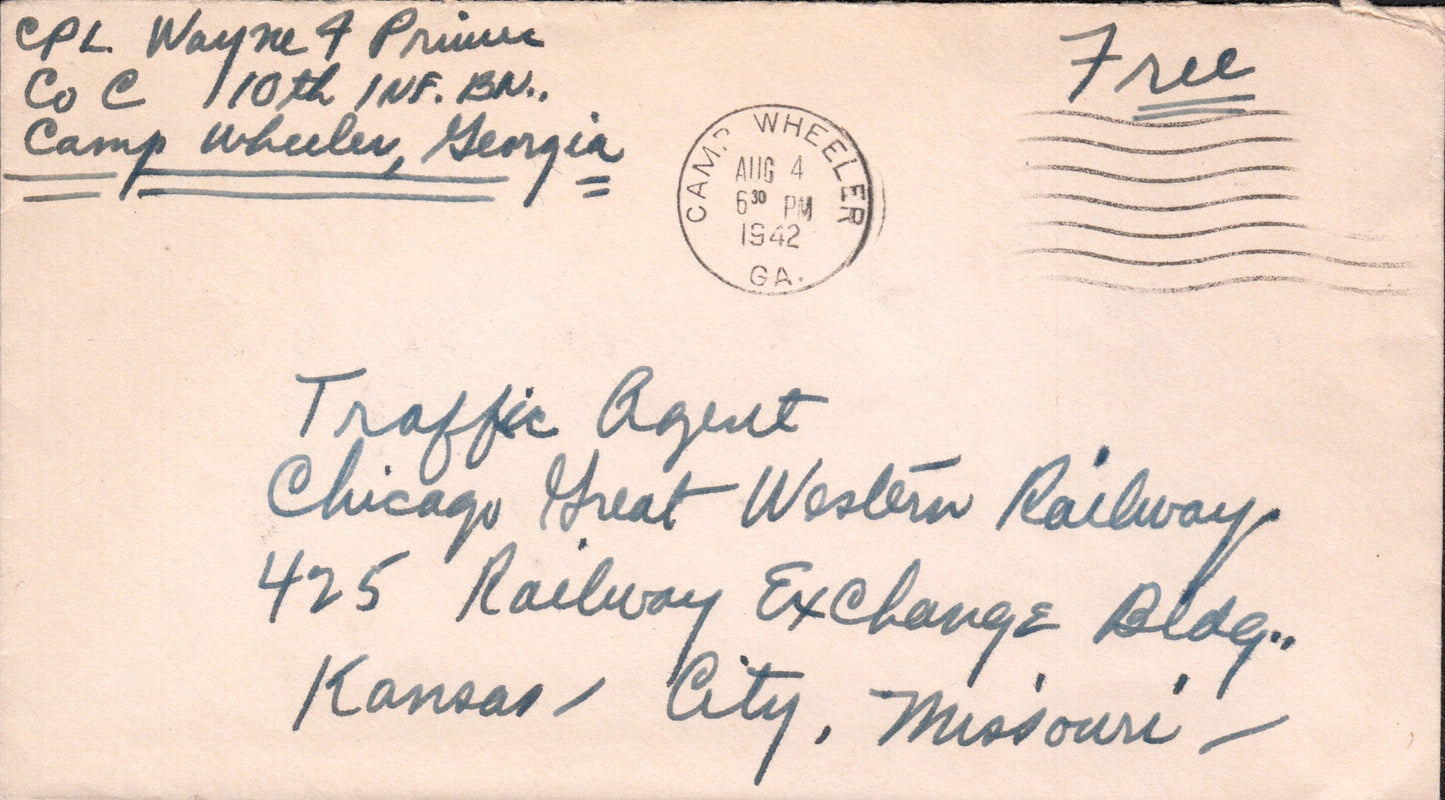 CPL Wayne F
Co C 10th INF. BN.,
Camp Wheeler, Georgia
Free
CAMP WHEELER
AUG 4
6 30 PM
1942
GA.
Traffic Agent
Chicago Great Western Railway
425 Railway Exchange Bldg.,
Kansas City, Missouri